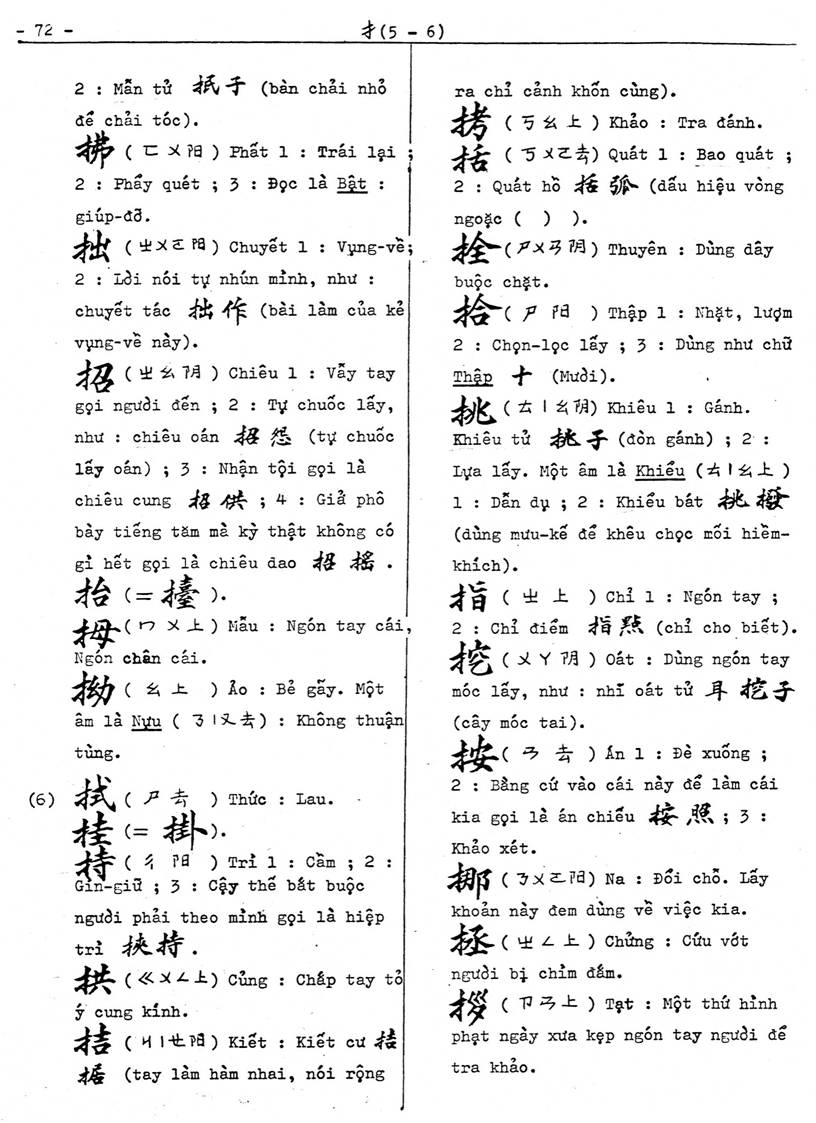 - 72 -
扌(5 - 6)
2 : Mẫn tử 抿子 (bàn chải nhỏ
để chải tóc).
拂 (ㄈㄨ阳) Phất 1 : Trái lại ;
2 : Phẩy quét ; 3 : Đọc là Bật :
giúp-đỡ.
拙 (ㄓㄨㄛ阳) Chuyết 1 : Vụng-về;
2 : Lời nói tự nhún mình, như :
chuyết tác 拙作 (bài làm của kẻ
vụng-về này).
招 (ㄓㄠ阴) Chiêu 1 : Vẫy tay
gọi người đến ; 2 : Tự chuốc lấy,
như : chiêu oán 招怨 (tự chuốc
lấy oán) ; 3 : Nhận tội gọi là
chiêu cung 招供 ; 4 : Giả phô
bày tiếng tăm mà kỳ thật không có
gì hết gọi là chiêu dao 招摇 .
抬 (= 擡 ).
拇 (ㄇㄨ上) Mẫu : Ngón tay cái,
Ngón chân cái.
拗 (ㄠ上 ) Ảo : Bẻ gãy. Một
âm là Nựu (ㄋㄧㄡ去) : Không thuận
tùng.
(6) 拭 (ㄕ去 ) Thức : Lau.
挂 (= 掛).
持 (ㄔ阳 ) Trì 1 : Cầm ; 2 :
Gìn-giữ ; 3 : Cậy thế bắt buộc
người phải theo mình gọi là hiệp
trì 挾持 .
拱 (ㄍㄨㄥ上) Củng : Chắp tay tỏ
ý cung kính.
拮 (ㄐㄧㄝ阳) Kiết : Kiết cư 拮
据 (tay làm hàm nhai, nói rộng
ra chỉ cảnh khốn cùng).
拷 (ㄎㄠ上) Khảo : Tra đánh.
括 (ㄎㄨㄛ去) Quát 1 : Bao quát ;
2 : Quát hồ 括弧 (dấu hiệu vòng
ngoặc ( ) ).
拴 (ㄕㄨㄢ阴) Thuyên : Dùng dây
buộc chặt.
拾 (ㄕ阳 ) Thập 1 : Nhặt, lượm
2 : Chọn-lọc lấy ; 3 : Dùng như chữ
Thập 十 (Mười).
挑 (ㄊㄧㄠ阴) Khiêu 1 : Gánh.
Khiêu tử 挑子 (đòn gánh) ; 2 :
Lựa lấy. Một âm là Khiểu (ㄊㄧㄠ上)
1 : Dẫn dụ ; 2 : Khiểu bát 挑撥
(dùng mưu-kế để khêu chọc mối hiềm-
khích).
指 (ㄓ上 ) Chỉ 1 : Ngón tay ;
2 : Chỉ điểm 指點 (chỉ cho biết).
挖 (ㄨㄚ阴) Oát : Dùng ngón tay
móc lấy, như : nhĩ oát tử 耳挖子
(cây móc tai).
按 (ㄢ去 ) Án 1 : Đè xuống ;
2 : Bằng cứ vào cái này để làm cái
kia gọi là án chiếu 按照 ; 3 :
Khảo xét.
挪 (ㄋㄨㄛ阳) Na : Đổi chỗ. Lấy
khoản này đem dùng về việc kia.
拯 (ㄓㄥ上) Chửng : Cứu vớt
người bị chìm đắm.
拶 (ㄗㄢ上) Tạt : Một thứ hình
phạt ngày xưa kẹp ngón tay người để
tra khảo.